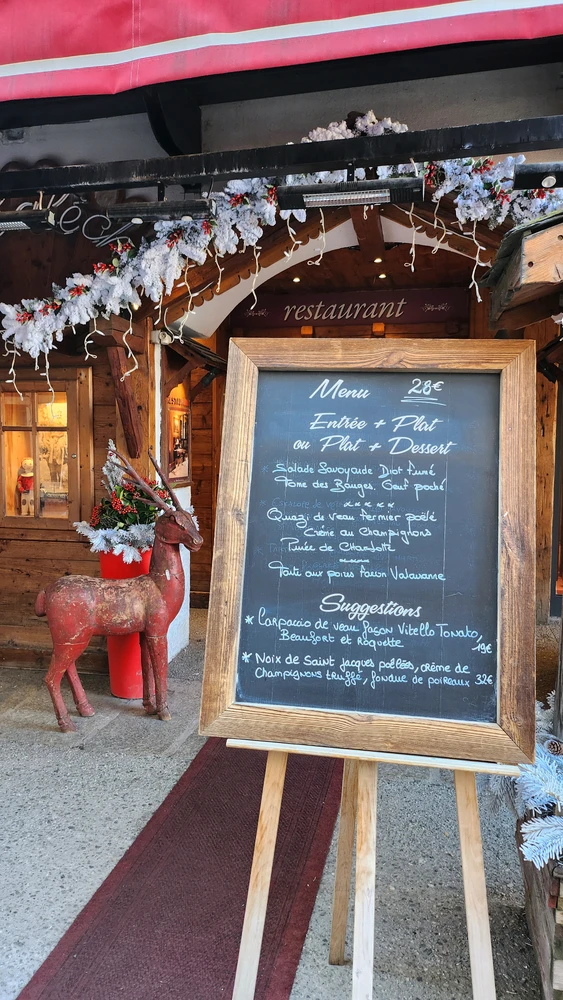 restaurant
Menu 28€
Entrée + Plat
ou Plat + Dessert
Salade Savoyarde Diot fumé
Tome des Bauges. Oeuf poché
Quazi de veau fermier poêlé
Crème au champignons
Purée de Charlotte
Tarte aux poires façon Valavranne
Suggestions
* Carpaccio de veau façon Vitello Tonato,
Beaufort et Roquette 19€
* Noix de Saint Jacques poêlées, crème de
Champignons truffé, fondue de poireaux 32€